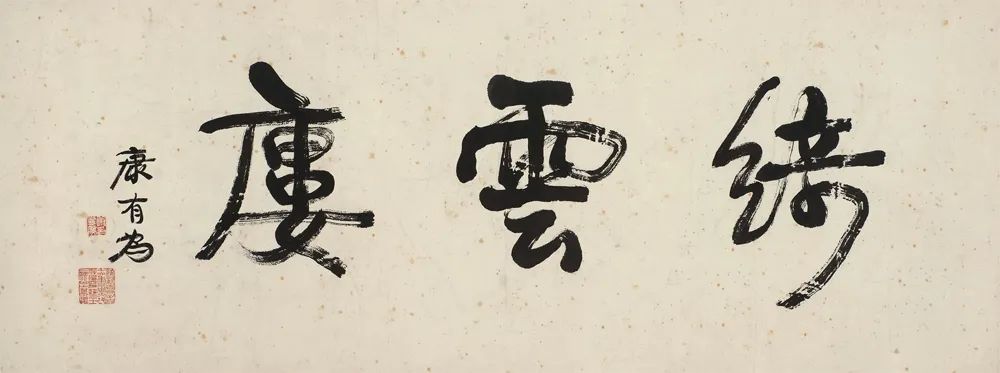 綺雲廔
康有為